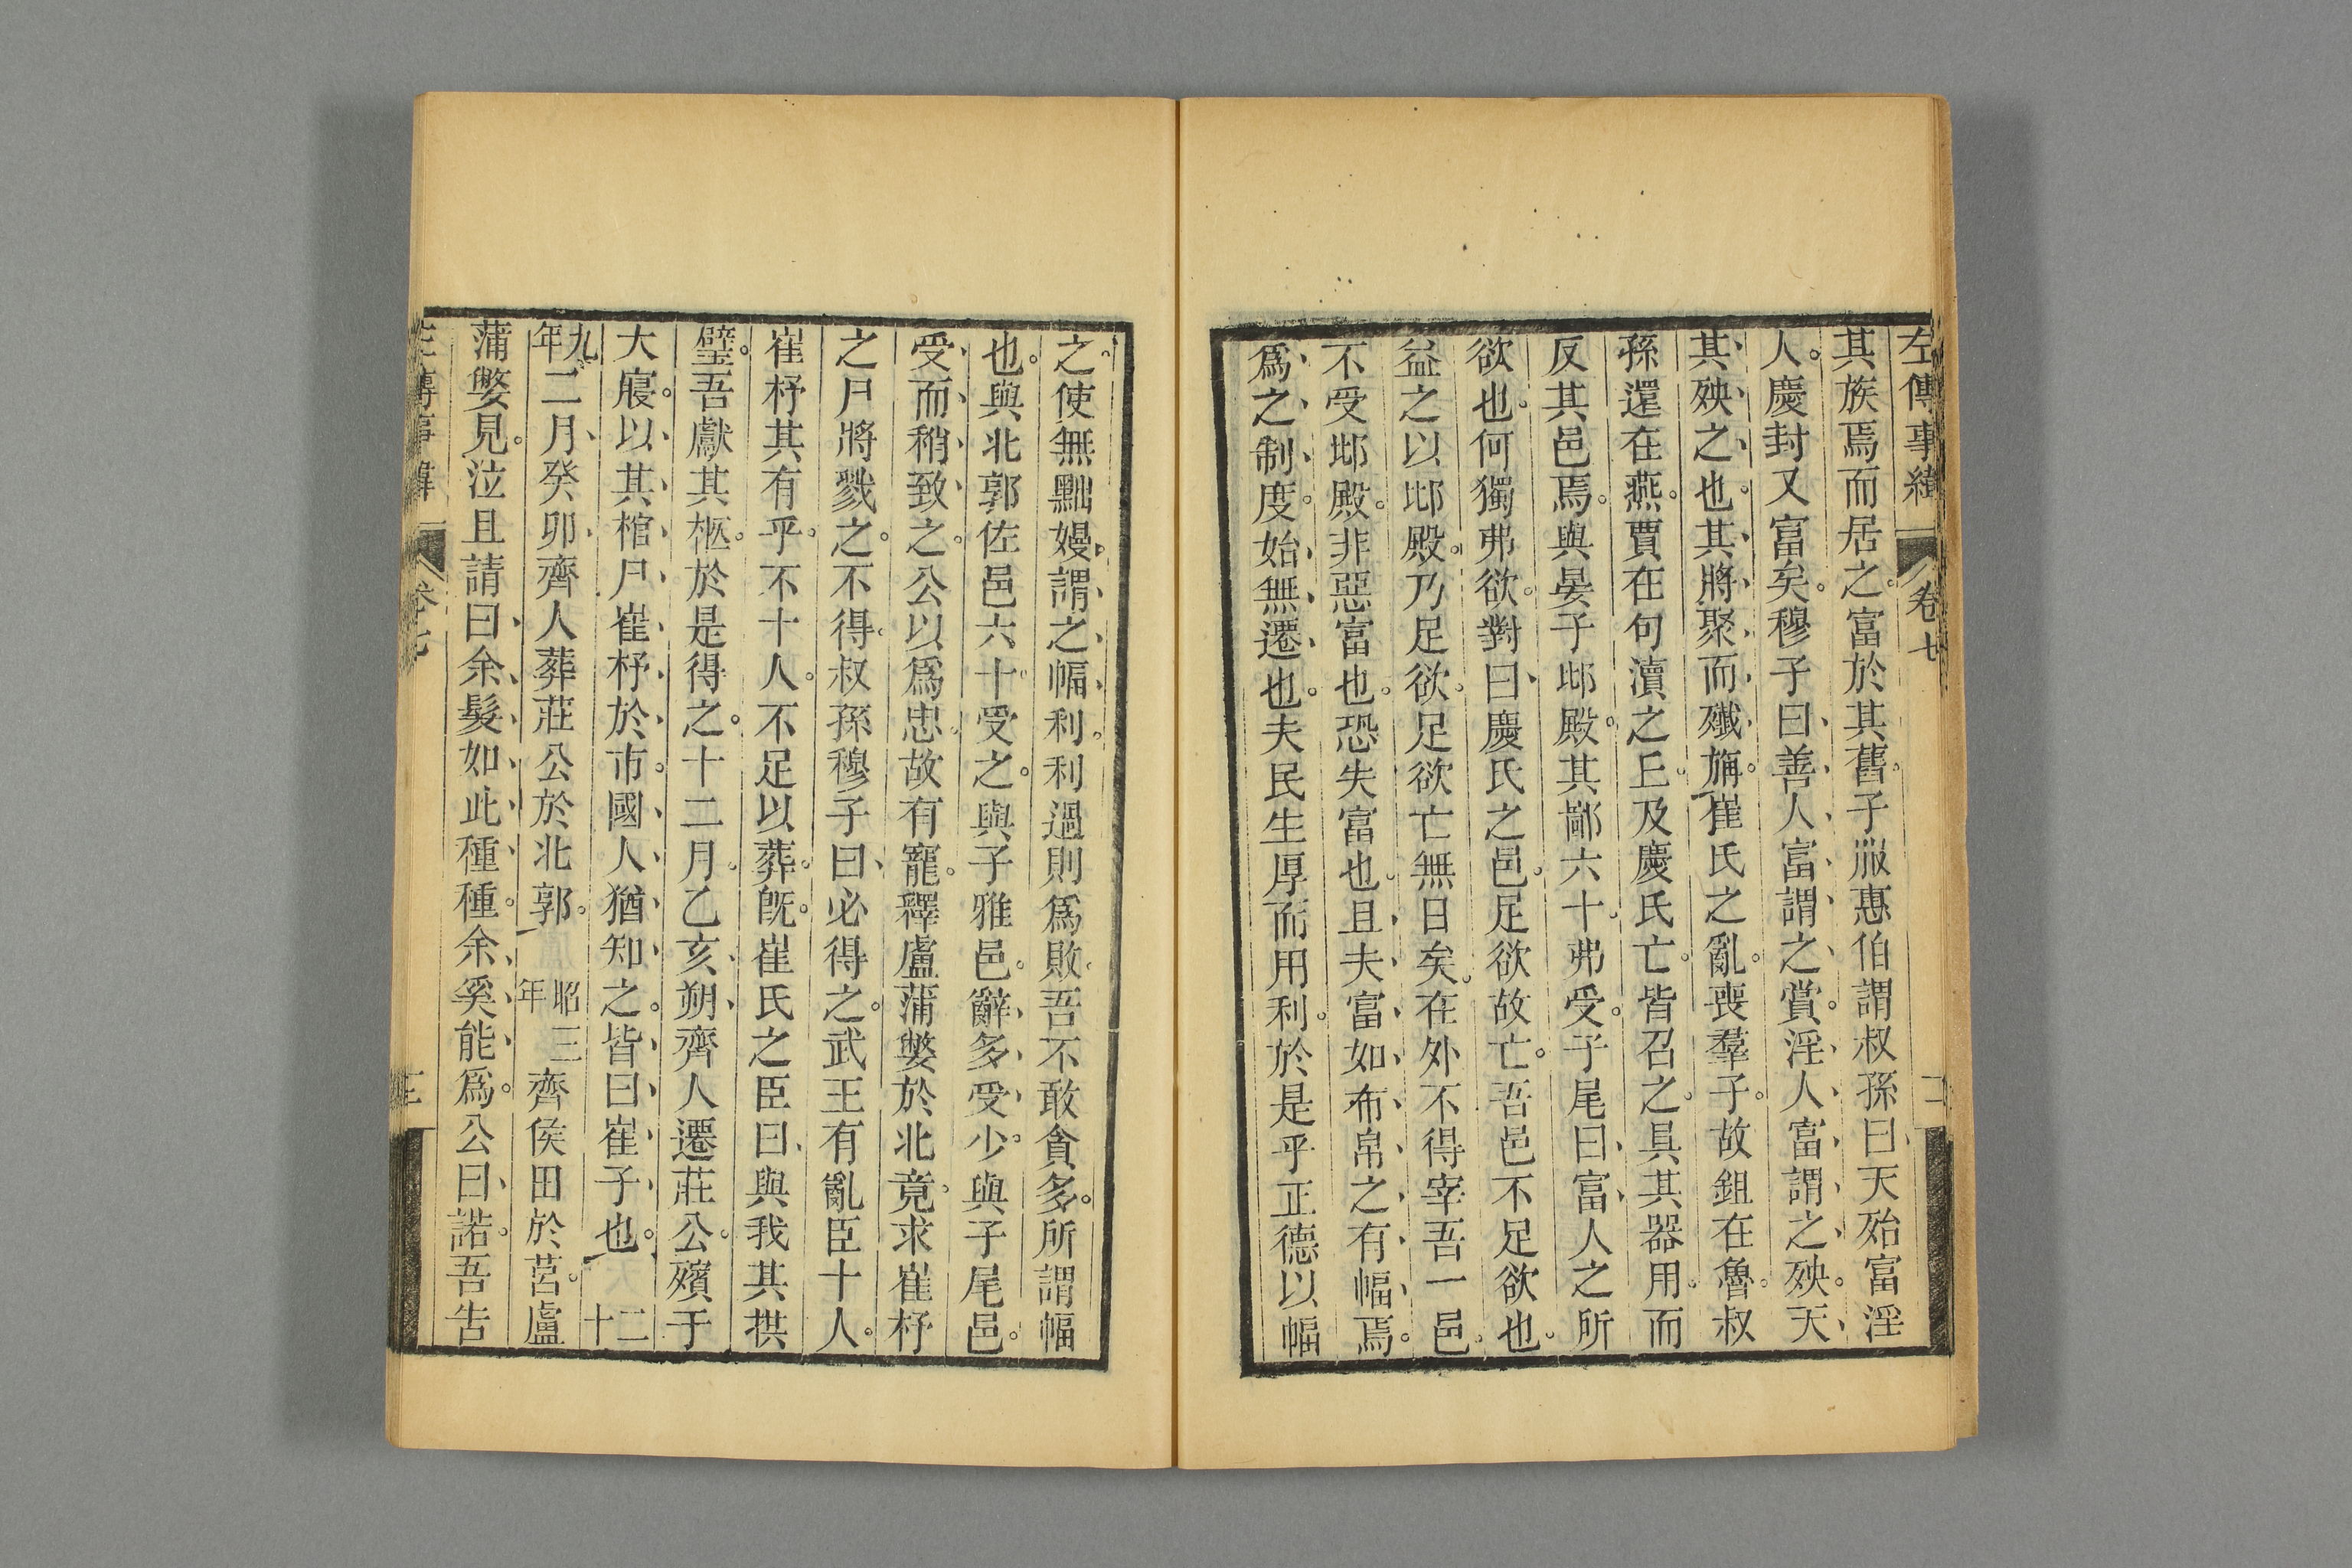 左傳事緯 卷七 二
其族焉而居之富於其舊子服惠伯謂叔孫曰天殆富淫
人慶封又富矣穆子曰善人富謂之賞淫人富謂之殃天
其殃之也其將聚而殲旃崔氏之亂喪羣子故鉏在魯叔
孫還在燕賈在句瀆之丘及慶氏亡皆召之具其器用而
反其邑焉與晏子邶殿其鄙六十弗受子尾曰富人之所
欲也何獨弗欲對曰慶氏之邑足欲故亡吾邑不足欲也
益之以邶殿乃足欲足欲亡無日矣在外不得宰吾一邑
不受邶殿非惡富也恐失富也且夫富如布帛之有幅焉
爲之制度始無遷也夫民生厚而用利於是乎正德以幅
之使無黜嫚謂之幅利利過則爲敗吾不敢貪多所謂幅
也與北郭佐邑六十受之與子雅邑辭多受少與子尾邑
受而稍致之公以爲忠故有寵釋盧蒲嫳於北竟求崔杼
之尸將戮之不得叔孫穆子曰必得之武王有亂臣十人
崔杼其有乎不十人不足以葬旣崔氏之臣曰與我其拱
璧吾獻其柩於是得之十二月乙亥朔齊人遷莊公殯于
大寢以其棺尸崔杼於市國人猶知之皆曰崔子也二十
九年二月癸卯齊人葬莊公於北郭昭三年齊侯田於莒盧
蒲嫳見泣且請曰余髮如此種種余奚能爲公曰諾吾告
左傳事緯 卷七 三